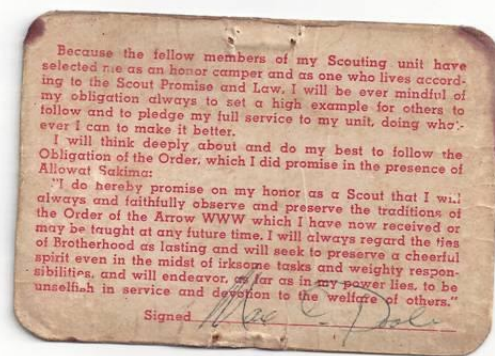 Because the fellow members of my Scouting unit have
selected me as an honor camper and as one who lives accord-
ing to the Scout Promise and Law, I will be ever mindful of
my obligation always to set a high example for others to
follow and to pledge my full service to my unit, doing what-
ever I can to make it better.
I will think deeply about and do my best to follow the
Obligation of the Order, which I did promise in the presence of
Allowat Sakima:
"I do hereby promise on my honor as a Scout that I will
always and faithfully observe and preserve the traditions of
the Order of the Arrow WWW which I have now received or
may be taught at any future time. I will always regard the ties
of Brotherhood as lasting and will seek to preserve a cheerful
spirit even in the midst of irksome tasks and weighty respon-
sibilities, and will endeavor, as far as in my power lies, to be
unselfish in service and devotion to the welfare of others."
Signed Max C.